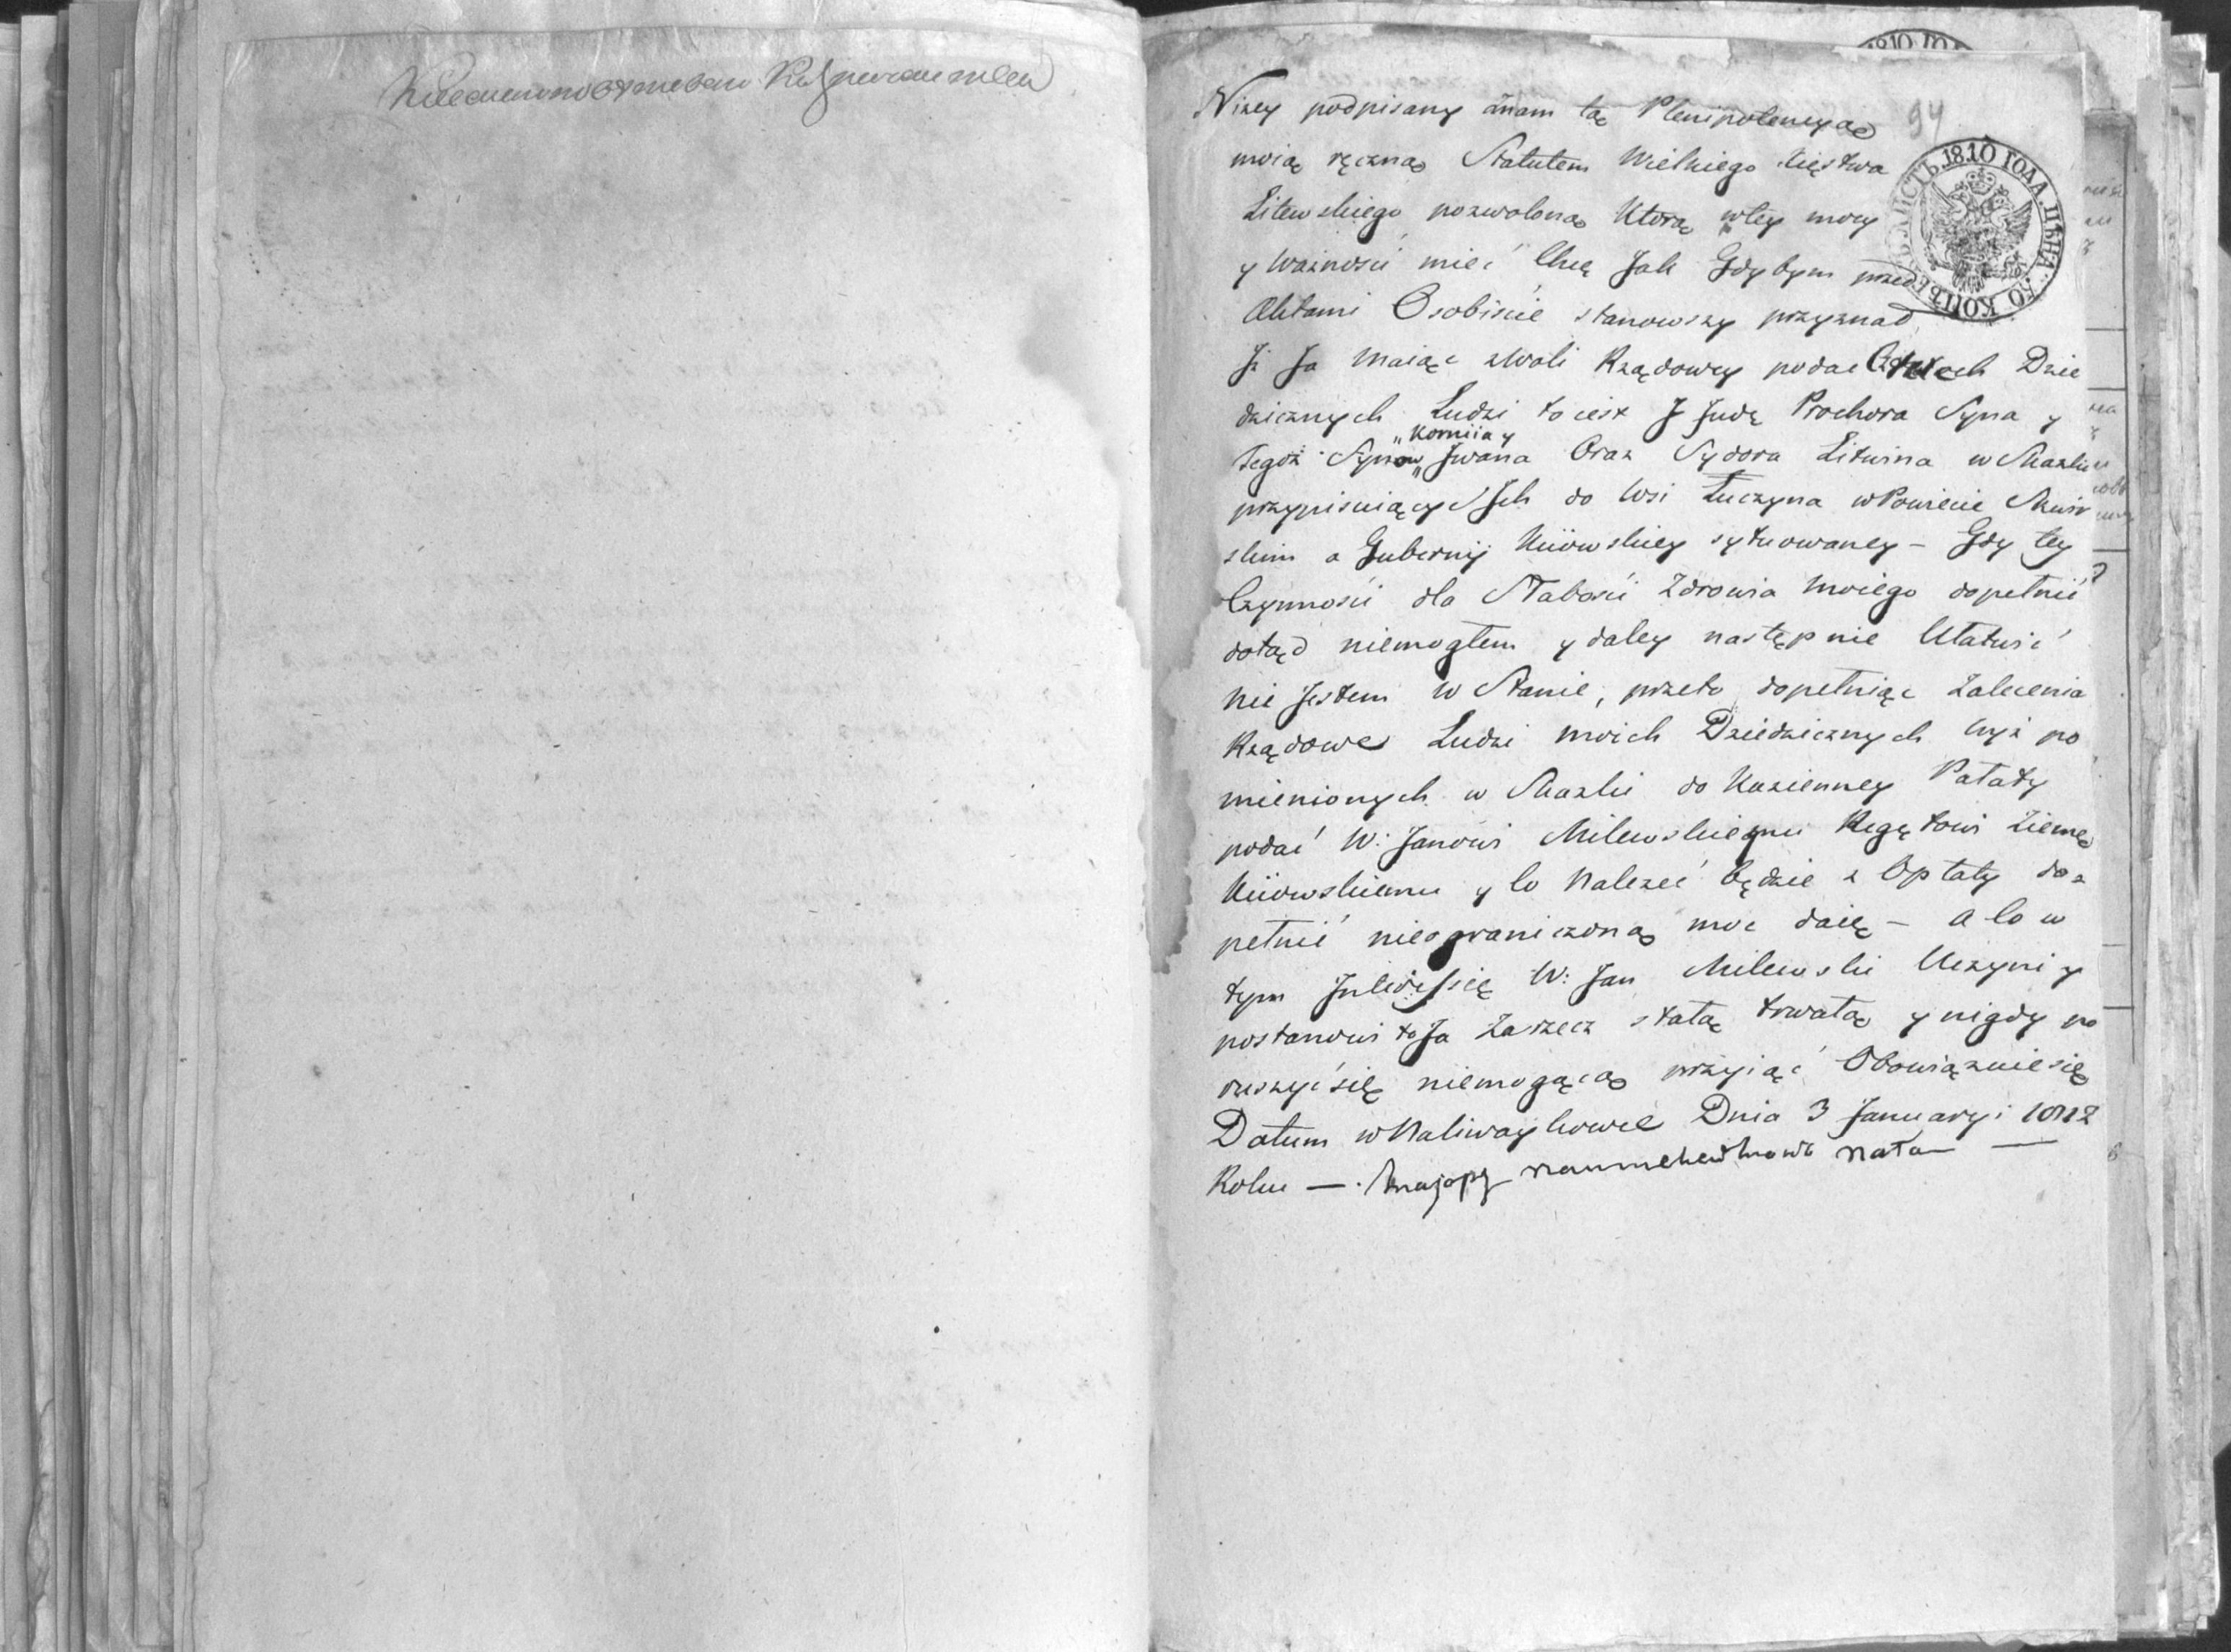 Niżey podpisany znam tą Plenipotencyą
94
moią ręczną Statutem Wielkiego Xięstwa
Litewskiego pozwoloną Ktorą wtey mocy
y Ważności mieć Chcę Jak Gdybym przed
Aktami Osobiście stanowszy przyznał
Jż Ja Maiąc zWoli Rządowey podać Dzie
dzicznych Ludzi to iest Judę Prochora Syna y
Tegoż Synow „Korniia y„ Jwana Oraz Sydora Litwina w Skazkę
przypisuiących do Wsi Łuczyna wPowiecie Skwir
skim a Gubernij Kiiowskiey sytuowaney – Gdy tey
Czynności dla Słabości Zdrowia Moiego dopełnić
dotąd niemogłem y daley następnie Ułatwić
nie Jestem w Stanie, przeto dopełniąc Zalecenia
Rządowe Ludzi moich Dziedzicznych wyż po
mienionych w Skazki do Kazienney Pałaty
podać W: Janowi Milewskiemu Regętowi Ziemę
Kiiowskiemu y Co Należeć będzie z Opłaty do
pełnić nieograniczoną moc daię – a Co w
tym W: Jan Milewski Uczyni y
postanowi to Ja Za rzecz stałą trwałą y nigdy po
ruszyć się niemogącą przyiąć Obowiązuie się
Datum wNaliwaykowce Dnia 3 January 1812
Roku —
1810 ГОДА. ЦѢНА КОПѢЕКЪ
1810 ГО